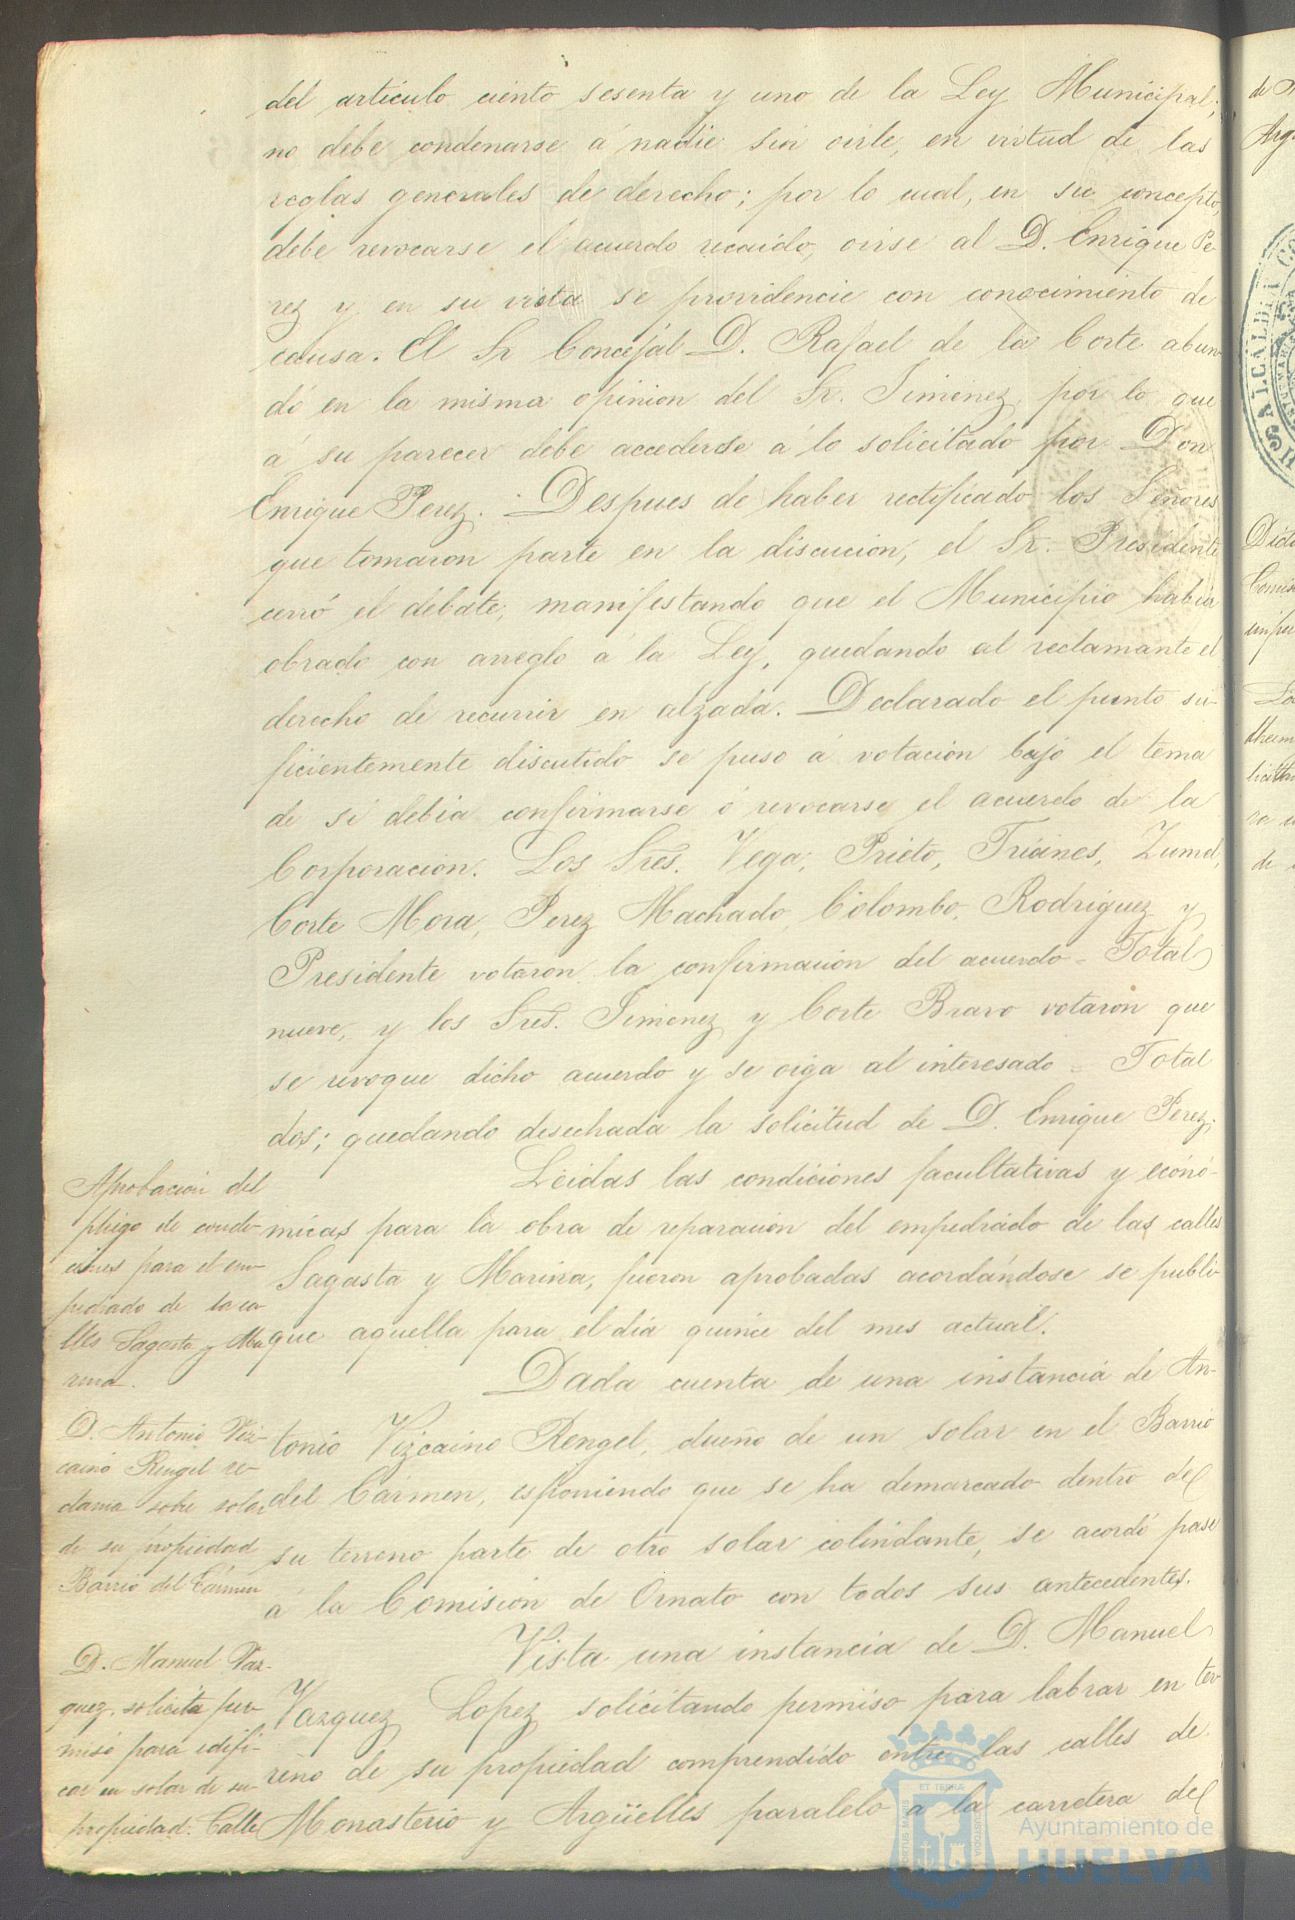 del articulo ciento sesenta y uno de la Ley Municipal;
no debe condenarse á nadie sin oirle, en virtud de las
reglas generales de derecho; por lo cual, en su concepto,
debe revocarse el acuerdo recaido, oirse al D. Enrique Pe-
rez y en su vista se providencie con conocimiento de
causa. El Sr Concejal D. Rafael de la Corte abun-
dó en la misma opinion del Sr. Jimenez, por lo que
á su parecer debe accederse á lo solicitado por Don
Enrique Perez. Despues de haber rectificado los Señores
que tomaron parte en la discucion, el Sr. Presidente
cerró el debate, manifestando que el Municipio habia
obrado con arreglo á la Ley, quedando al reclamante el
derecho de recurrir en alzada. Declarado el punto su-
ficientemente discutido se puso á votacion bajo el tema
de si debia confirmarse ó revocarse el acuerdo de la
Corporacion. Los Sres. Vega, Prieto, Trianes, Zumel,
Corte Mora, Perez Machado, Colombo, Rodriguez y
Presidente votaron la confirmacion del acuerdo = Total
nueve, y los Sres. Jimenez y Corte Bravo votaron que
se revoque dicho acuerdo y se oiga al interesado = Total
dos; quedando desechada la solicitud de D. Enrique Perez.
Aprobacion del
pliego de condi-
ciones para el em-
pedrado de la ca-
lles Sagasta y Ma
rina.
Leidas las condiciones facultativas y econó-
micas para la obra de reparacion del empedrado de las calles
Sagasta y Marina, fueron aprobadas acordándose se publi-
que aquella para el dia quince del mes actual.
D. Antonio Viz-
caino Rengel re-
clama sobre solar
de su propiedad
Barrio del Cármen
Dada cuenta de una instancia de An-
tonio Vizcaino Rengel, dueño de un solar en el Barrio
del Cármen, esponiendo que se ha demarcado dentro del
su terreno parte de otro solar colindante, se acordó pase
á la Comision de Ornato con todos sus antecedentes.
D. Manuel Vaz-
quez, solicita per-
miso para edifi-
car en solar de su
propiedad. Calle
Vista una instancia de D. Manuel
Vazquez Lopez solicitando permiso para labrar en ter-
reno de su propiedad comprendido entre las calles de
Monasterio y Argüelles paralelo á la carretera del
Ayuntamiento de
HUELVA